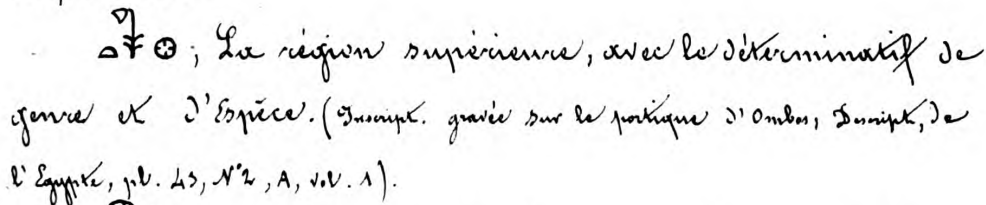 ; La région supérieure, avec le déterminatif de
genre et d'Espèce. (Inscript. gravée sur le portique d'Ombos, Descript, de
l'Egypte, pl. 43, N° 2, A, vol. 1).